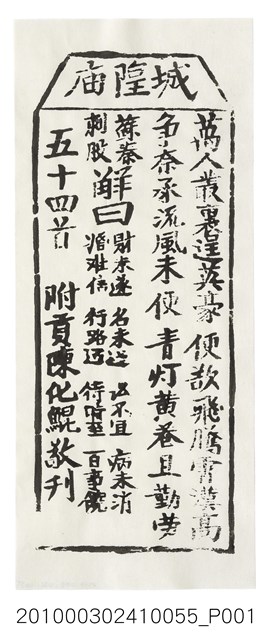 城隍庙
萬人叢裏逞英豪 便欲飛騰霄漢高
争奈承流風未便 青灯黄卷且勤勞
蘇秦刺股
解曰
財未遂 名未遂 出不宜 病未消
婚难信 行路迟 待時至 百事饒
五十四首 附貢陳化鯤敬刊
201000302410055_P001